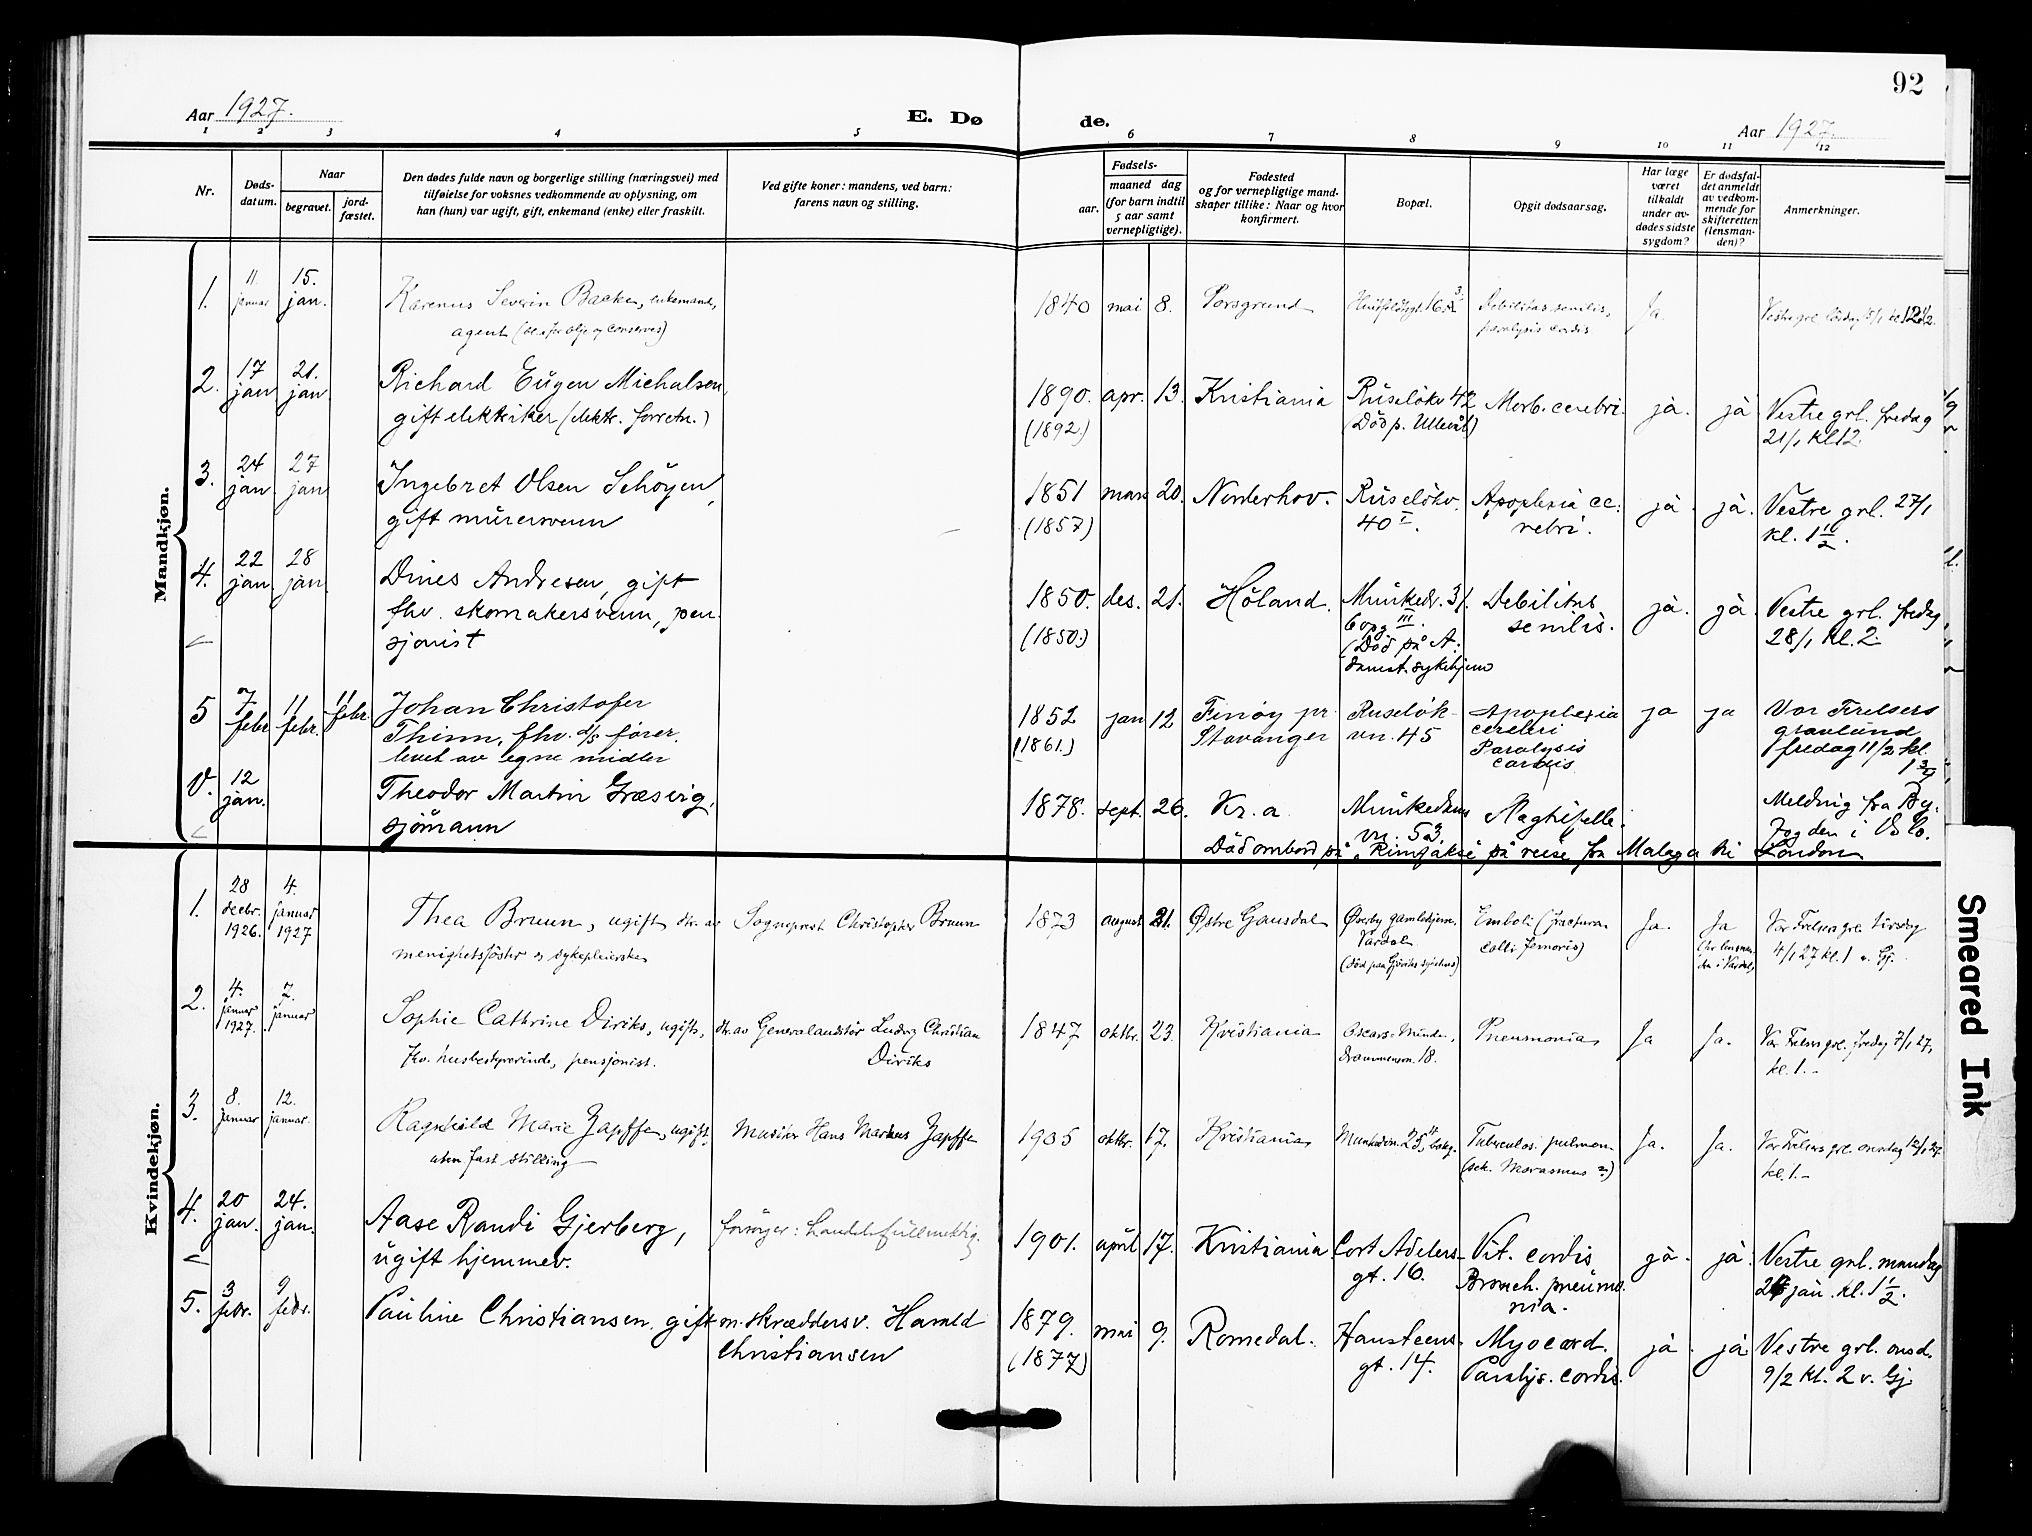 92
Aar 1927.
E. Dø
de.
Aar 1927.
1 2 3 4 5 6 7 8 9 10 11 12
Nr.
Døds-
datum.
Naar
begravet.
jord-
fæstet.
Den dødes fulde navn og borgerlige stilling (næringsvei) med
tilføielse for voksnes vedkommende av oplysning, om
han (hun) var ugift, gift, enkemand (enke) eller fraskilt.
Ved gifte koner: mandens, ved barn:
farens navn og stilling.
Fødsels-
aar.
maaned dag
(for barn indtil
5 aar samt
vernepligtige).
Fødested
og for vernepligtige mand-
skaper tillike: Naar og hvor
konfirmert.
Bopæl.
Opgit dødsaarsag.
Har læge
været
tilkaldt
under av-
dødes sidste
sygdom?
Er dødsfal-
det anmeldt
av vedkom-
mende for
skifteretten
(lensman-
den)?
Anmerkninger.
Mandkjøn.
1.
11
januar
15.
jan.
Karenus Severin Backe, enkemand,
agent (bl.a. for olje og conserves)
1840 mai 8. Porsgrund
Debilitas senilis,
paralysis cordis
Ja.
Vestre grl. lørdag 15/1 kl. 12 1/2.
2.
17
jan
21.
jan
Richard Eugen Michalsen,
gift elektriker (elektr. forretn.)
1890. apr. 13. Kristiania
(1892.)
Ruseløkv 42
(Död p. Ullevål)
Morb. cerebri. ja. ja
Vestre grl. fredag
21/1 kl 12.
3.
24
jan
27
jan
Ingebret Olsen Schöyen,
gift murersvenn
1851 mars 20. Norderhov.
(1857)
Ruseløkv.
40 I.
Apoplexia ce:
rebri.
ja. ja.
Vestre grl. 27/1
kl. 1 1/2.
4.
22
jan
28
jan
Dines Andresen, gift
fhv. skomakersvenn, pen-
sjonist
1850. des. 21. Höland.
(1850.)
Munkedr. 31.
6 opg III.
(Död på A:
damst. sykehjem
Debilitas
senilis.
ja. ja
Vestre grl. fredag
28/1 kl. 2.
5
7
febr
11
febr.
11
febr.
Johan Christofer
Thinn, fhv. d/s fører.
levet av egne midler
1852 jan 12
(1861.)
Finöy pr.
Stavanger
Ruseløk-
vn. 45
Apoplexia
cerebri
Paralysis
cordis
ja ja
Vor Frelsers
gravlund
fredag 11/2 kl.
1 3/4
V.
12
jan.
Theodor Martin Græsvig,
sjömann
1878. sept. 26. Kr.a.
Munkedams
vn. 53
Meldning fra By-
fogden i Oslo.
Död ombord på "Rimfakse" på reise fra Malaga til London
Kvindekjøn.
1.
28
decbr.
1926.
4.
januar
1927
Thea Bruun, ugift dtr. av Sogneprest Christopher Bruun
menighetssöster og sykepleierske
1873 august 21. Østre Gausdal
Øverby gamlehjem.
Vardal
(död paa Gjöviks sykehus)
Emboli (fractura
colli femoris)
Ja. Ja
(for lensman-
den i Vardal)
Vor Frelsers grl. tirsdag
4/1 27 kl. 1 v. Gj.
2.
4.
januar
1927.
7.
januar
Sophie Cathrine Diriks, ugift, dtr. av Generalauditör Ludvig Christian
Diriks
fhv. husbestyrerinde, pensjonist.
1847 oktbr. 23. Kristiania
Oscars Minde,
Drammensvn. 18.
Pneumonia Ja Ja.
Vor Frelsers grl. fredag 7/1 27,
kl. 1. –
3.
8.
januar
12.
januar.
Ragnhild Marie Zapffe, ugift, Musiker Hans Markus Zapffe
uten fast stilling
1905 oktbr. 17. Kristiania
Tuberculos. pulmon.
(sek. Marasmus)
Ja. Ja.
Vor Frelsers grl. onsdag 12/1 27
kl. 1. –
4.
20
jan.
24.
jan.
Aase Randi Gjerberg,
ugift hjemmev.
forsörger: handelsfullmektig.
1901. april 17. Kristiania
Cort Adelers-
gt. 16.
Vit. cordis
Bronch. pneumo
nia.
ja. ja
Vestre grl. mandag
24 jan. kl. 1 1/2.
5.
3
febr.
9
febr.
Pauline Christiansen. gift m. skræddersv. Harald
Christiansen
1879. mai 9. Romedal.
(1877)
Hansteens-
gt. 14.
Myocard.
Paralys. cordis.
ja. ja
Vestre grl. onsd.
9/2 kl. 2 v. Gj
Smeared Ink